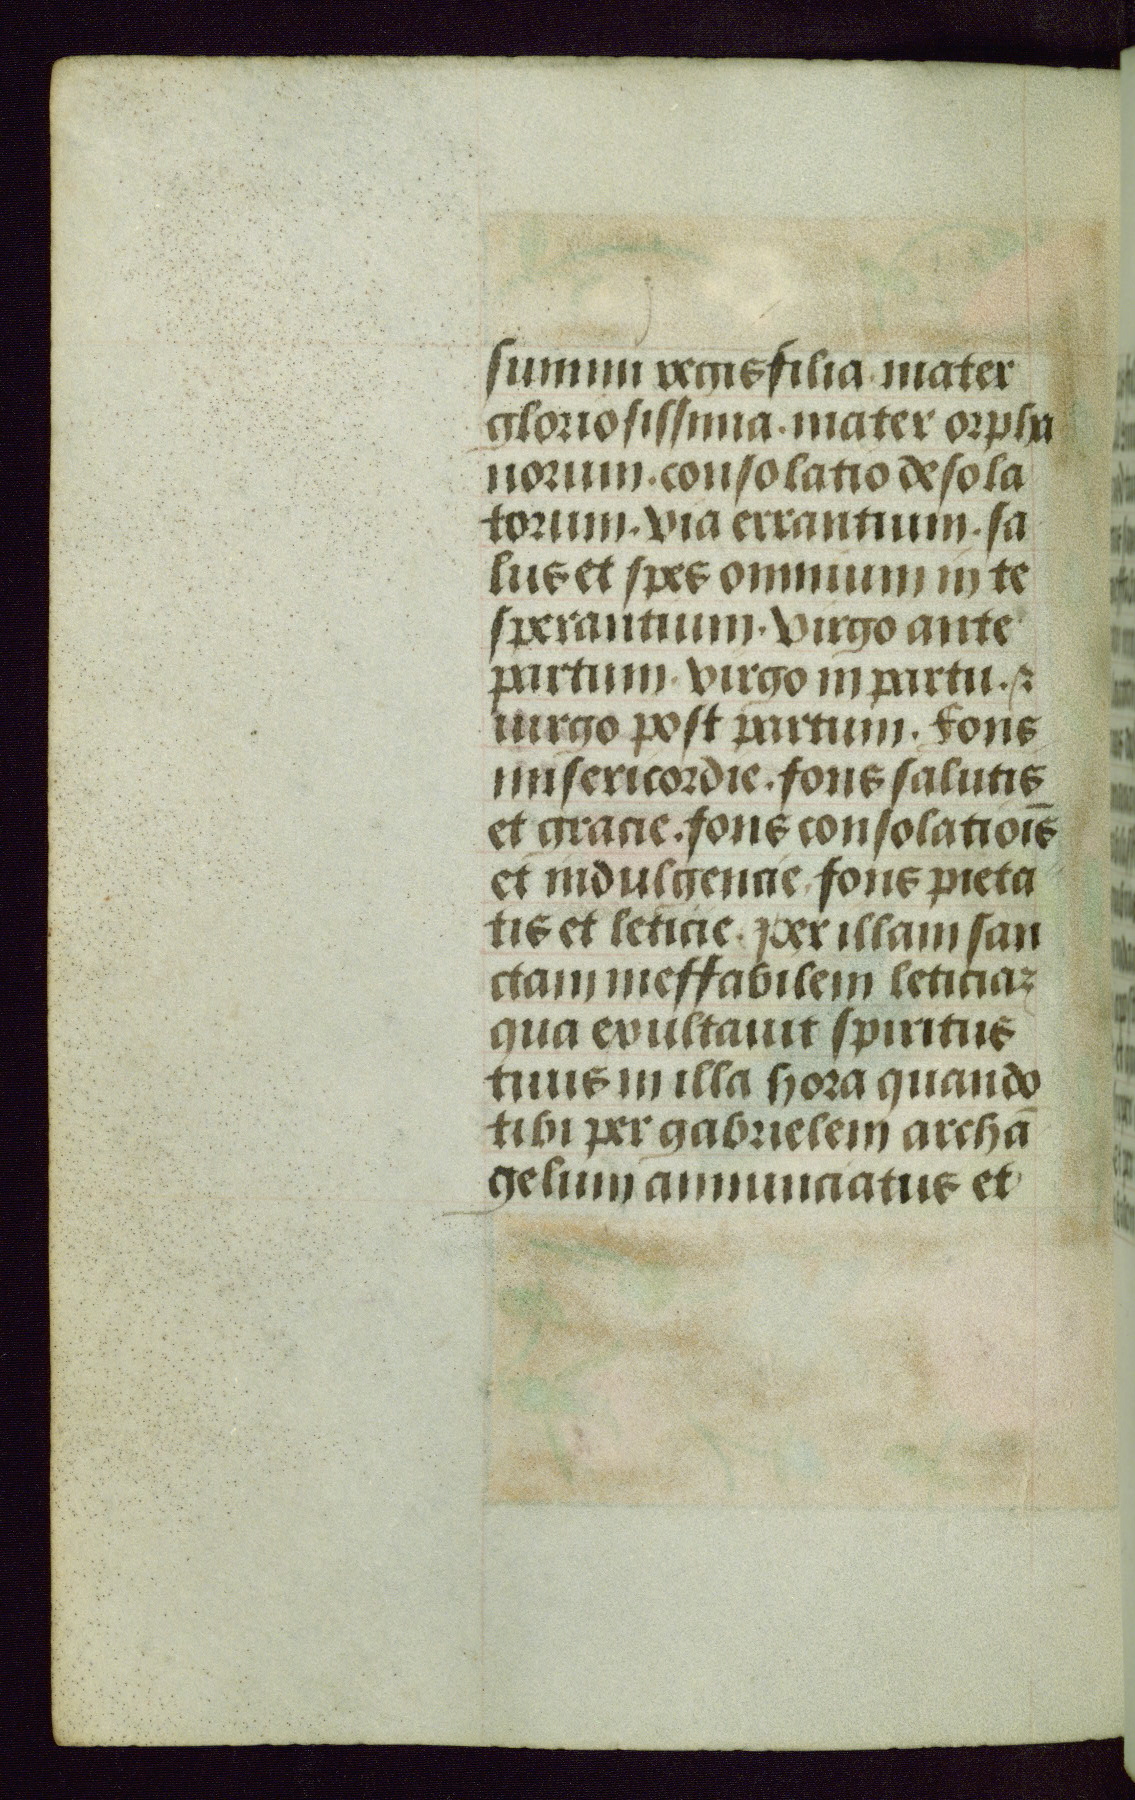 summi regis filia mater
gloriosissima. mater orpha
norum. consolatio desola
torum. via errantium. sa
lus et spes omnium in te
sperantium. virgo ante
partum. virgo in partu. ⁊
uirgo post partum. fons
misericordie. fons salutis
et gracie. fons consolatiois̄
et indulgencie. fons pieta
tis et leticie. per illam san
ctam ineffabilem leticiaꝫ
qua exultauit spiritus
tuus in illa hora quando
tibi per gabrielem archā
gelum annunciatus et